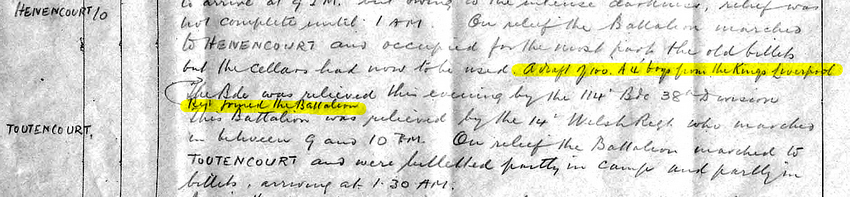 to arrive at 9 P.M. but owing to the intense darkness, relief was
HENENCOURT 10
not complete until 1 AM. On relief the Battalion marched
to HENENCOURT and occupied for the most part the old billets
but the cellars had now to be used. A draft of 100. A 4 boys from the Kings Liverpool
The Bde was relieved this evening by the 114th Bde 38th Division
Regt joined the Battalion
TOUTENCOURT.
This Battalion was relieved by the 14th Welsh Regt who marched
in between 9 and 10 PM. On relief the Battalion marched to
TOUTENCOURT and were billetted partly in camp and partly in
billets, arriving at 1.30 AM.